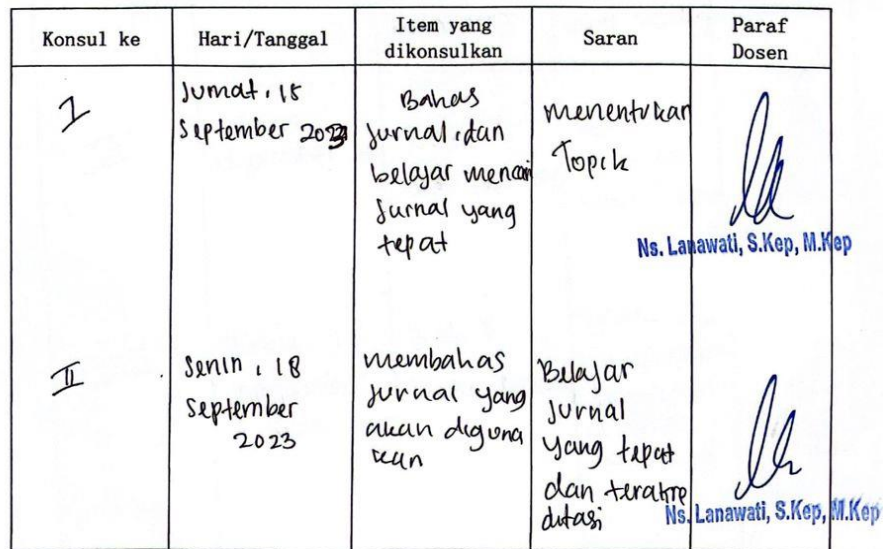 Konsul ke
Hari/Tanggal
Item yang
dikonsulkan
Saran
Paraf
Dosen
I
Jumat, 15
September 2023
Bahas
Jurnal, dan
belajar mencari
Jurnal yang
tepat
menentukan
Topik
Ns. Lanawati, S.Kep, M.Kep
II
Senin, 18
September
2023
membahas
Jurnal yang
akan diguna
kan
Belajar
Jurnal
yang tepat
dan terakre
ditasi
Ns. Lanawati, S.Kep, M.Kep